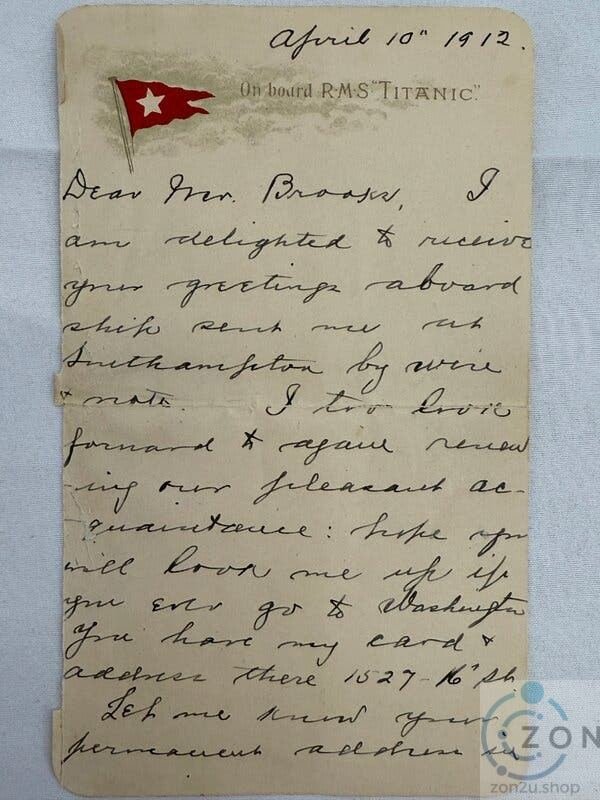 April 10" 1912.
On board R.M.S "TITANIC".
Dear Mr. Brooks, I
am delighted to receive
your greetings aboard
ship sent me at
Southampton by wire
& note. I too look
forward to again renew
-ing our pleasant ac-
quaintance: hope you
will look me up if
you ever go to Washington
You have my card &
address there 1527-16" St.
Let me know your
permanent address in
ZON
zon2u.shop